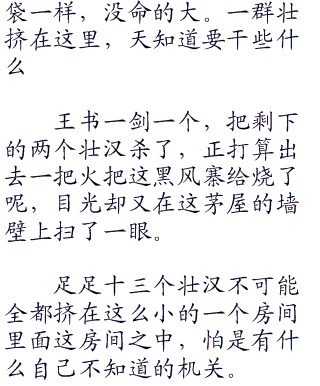 袋一样，没命的大。一群壮
挤在这里，天知道要干些什
么
王书一剑一个，把剩下
的两个壮汉杀了，正打算出
去一把火把这黑风寨给烧了
呢，目光却又在这茅屋的墙
壁上扫了一眼。
足足十三个壮汉不可能
全都挤在这么小的一个房间
里面这房间之中，怕是有什
么自己不知道的机关。